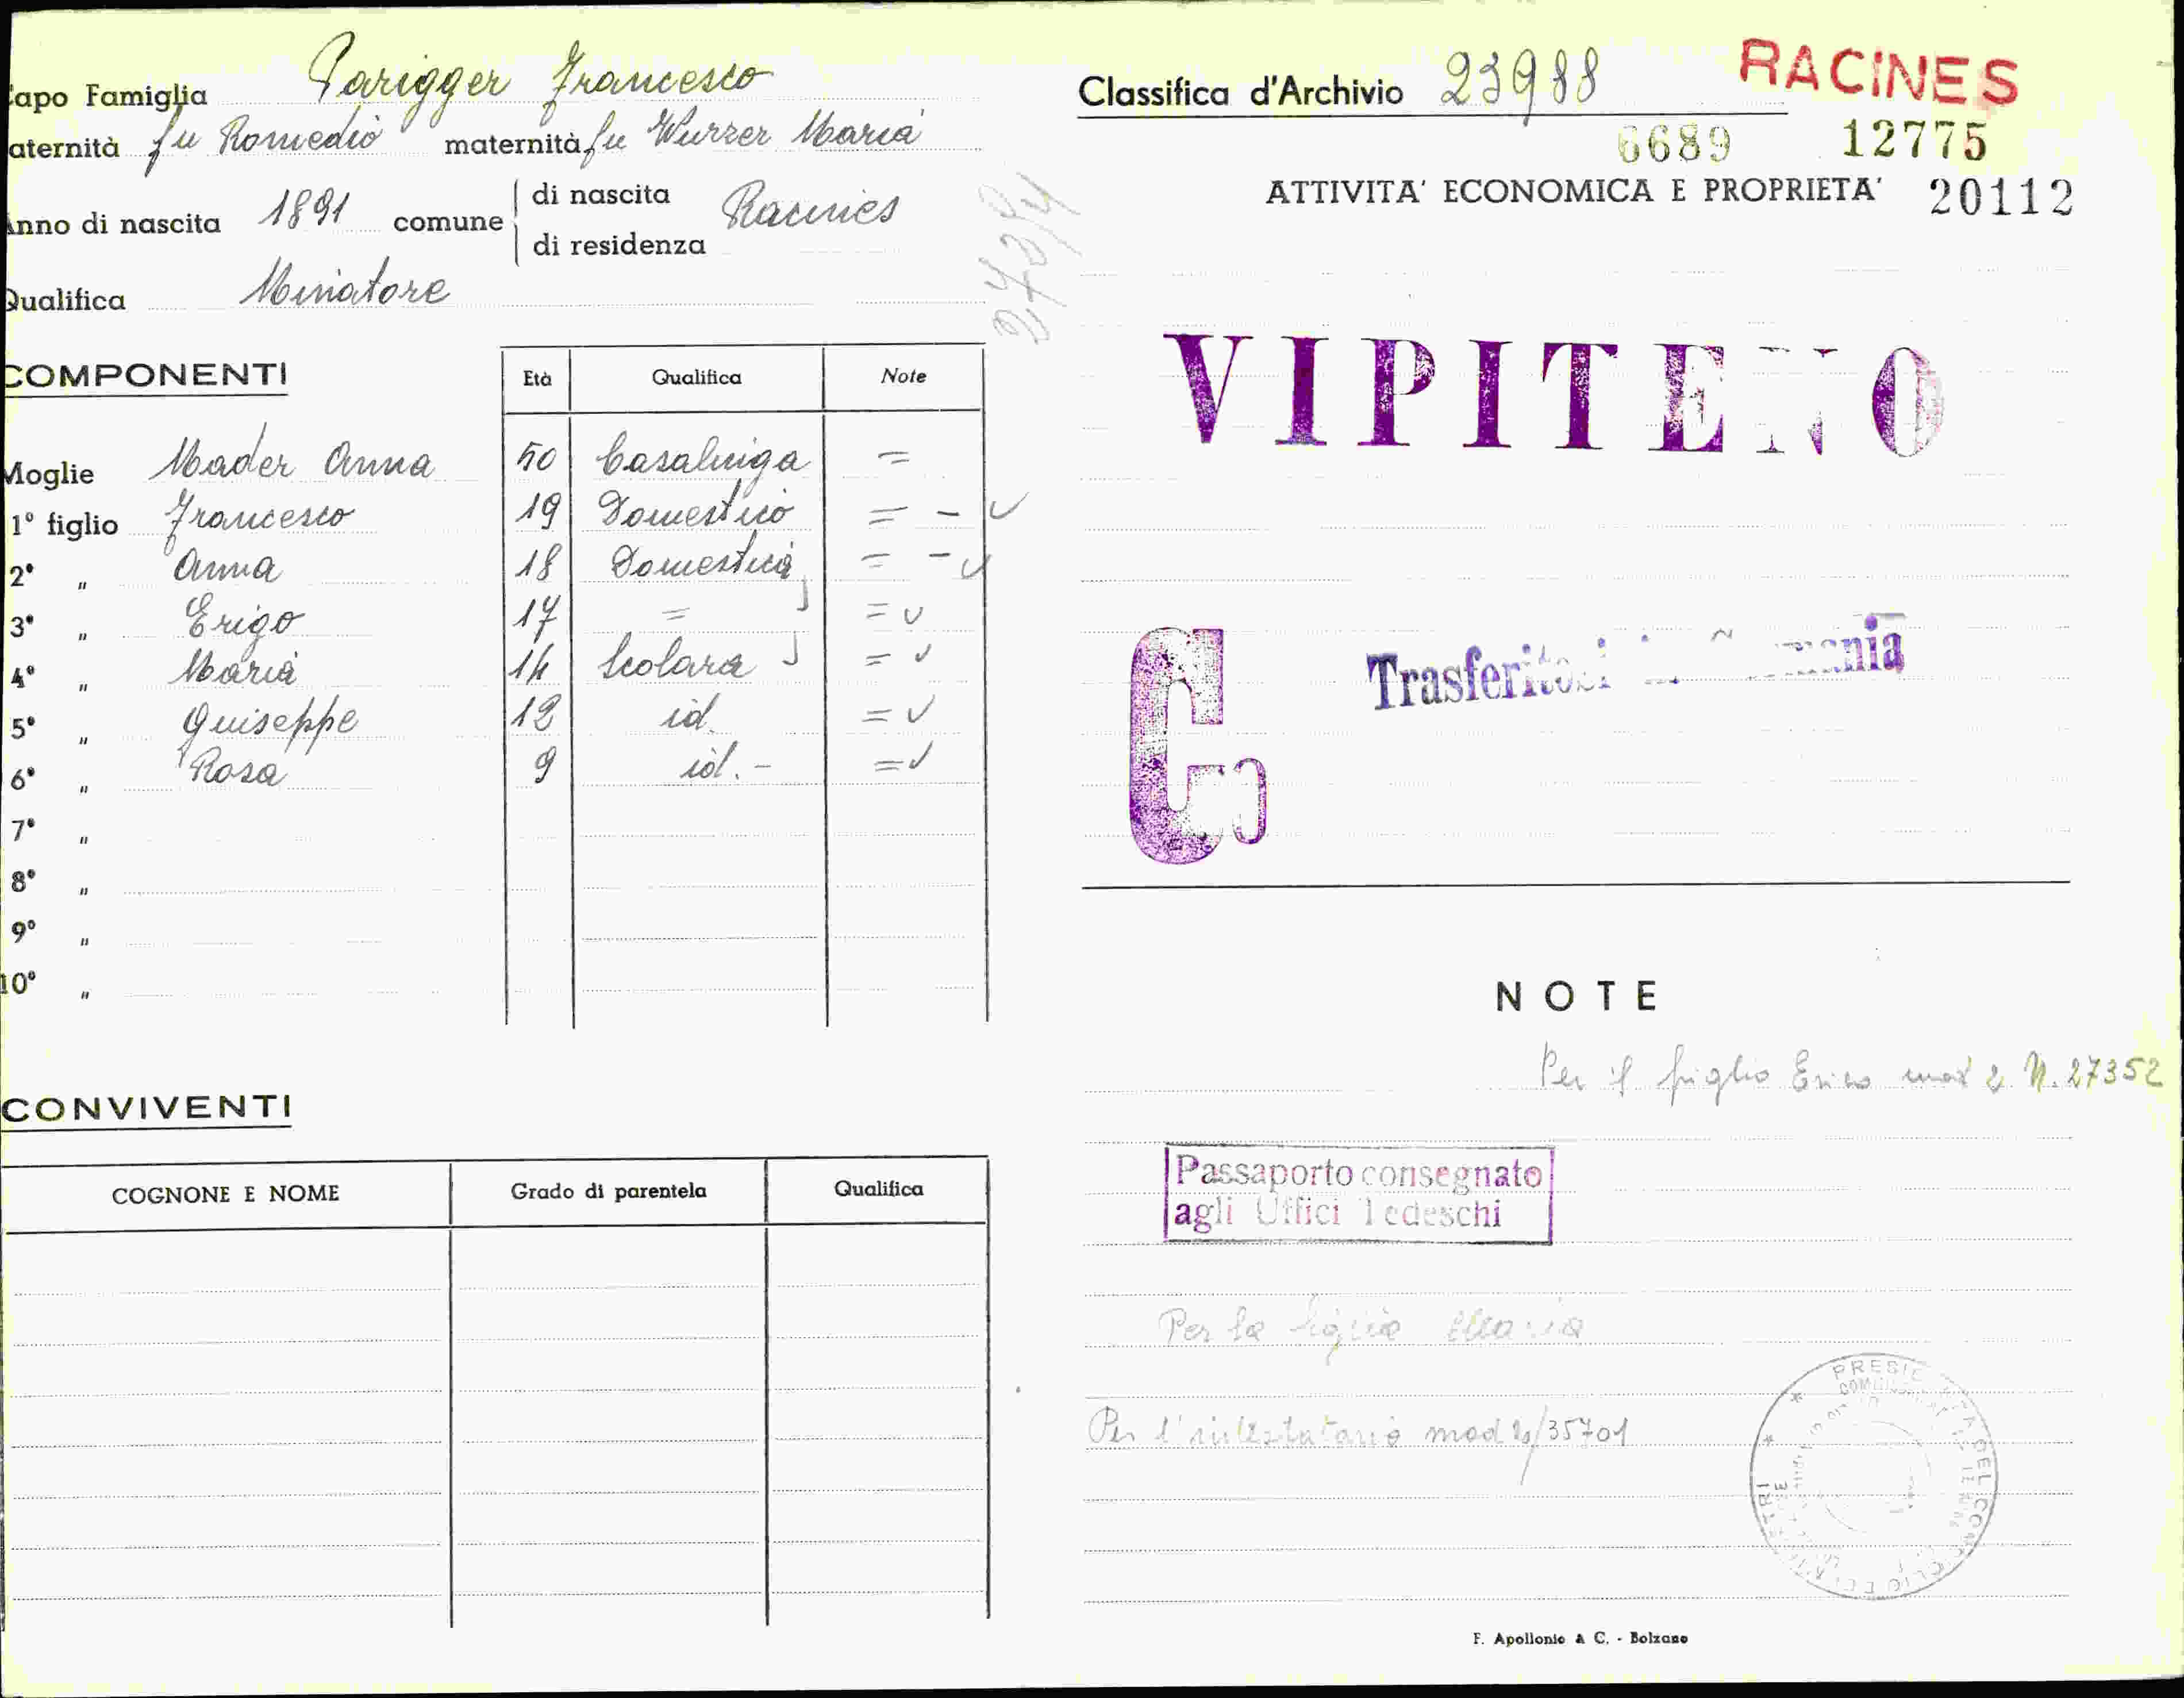 apo Famiglia Parigger Francesco
aternità fu Romedio maternità fu Wurzer Maria
Anno di nascita 1891 comune di nascita Racines
di residenza
Qualifica Minatore
COMPONENTI Età Qualifica Note
Moglie Mader Anna 50 Casalinga =
1° figlio Francesco 19 Domestico = -
2° „ Anna 18 Domestica = -
3° „ Erigo 17 = =
4° „ Maria 14 Scolara =
5° „ Guiseppe 12 id. =
6° „ Rosa 9 id. - =
7° „
8° „
9° „
10° „
CONVIVENTI
COGNONE E NOME Grado di parentela Qualifica
Classifica d'Archivio 23988 RACINES
6689 12775
ATTIVITA' ECONOMICA E PROPRIETA' 20112
VIPITENO
G
Trasferitosi in Germania
NOTE
Per il figlio Erico mod 2 N. 27352
Passaporto consegnato
agli Uffici Tedeschi
Per la figlia Maria
Per l'intestatario mod 2/35701
F. Apollonio & C. - Bolzano